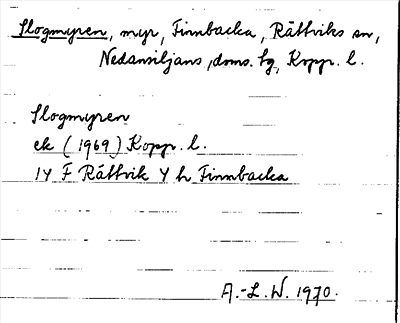 Slogmyren, myr, Finnbacka, Rättviks sn,
Nedansiljans doms. hg, Kopp. l.
Slogmyren
ek (1969) Kopp. l.
14 F Rättvik 4 h Finnbacka
A.-L.W. 1970.